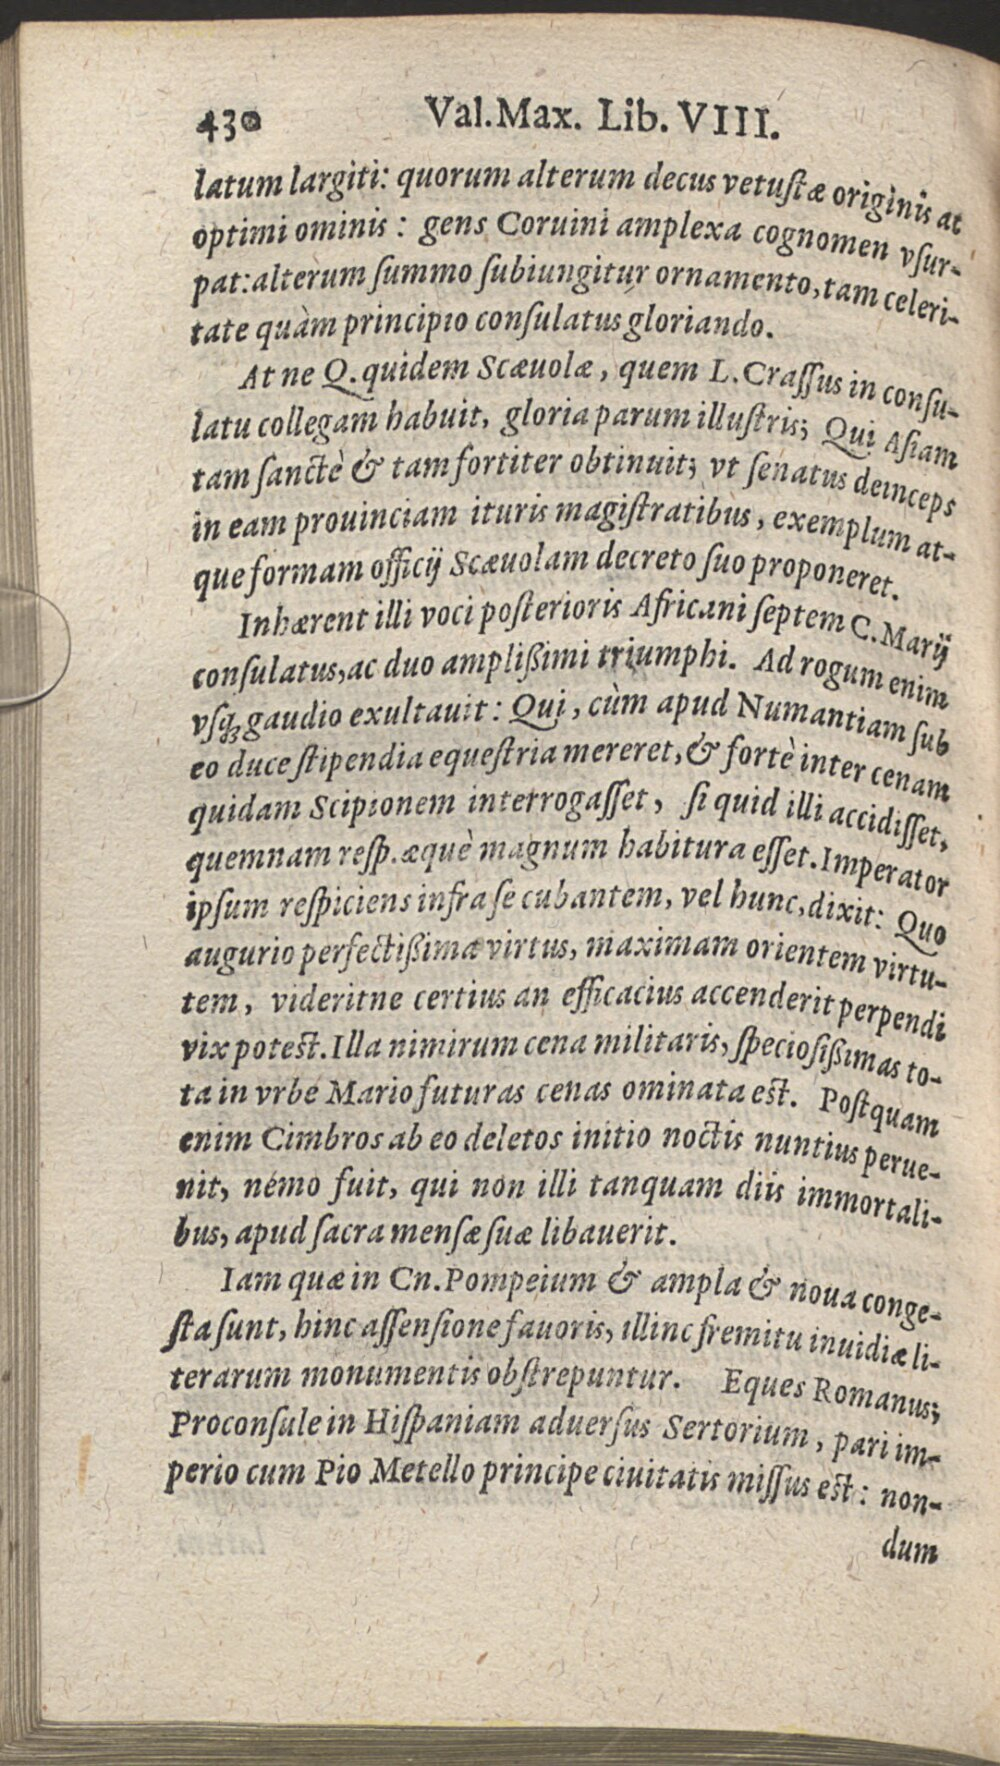 430 Val.Max. Lib. VIII.
latum largiti: quorum alterum decus vetuſtæ originis at
optimi ominis: gens Coruini amplexa cognomen vſur-
pat: alterum ſummo ſubiungitur ornamento, tam celeri-
tate quàm principio conſulatus gloriando.
At ne Q. quidem Scæuolæ, quem L. Craſſus in conſu-
latu collegam habuit, gloria parum illuſtris; Qui Aſiam
tam ſanctè & tam fortiter obtinuit; vt ſenatus deinceps
in eam prouinciam ituris magiſtratibus, exemplum at-
que formam officij Scæuolam decreto ſuo proponeret.
Inhærent illi voci poſterioris Africani ſeptem C. Marij
conſulatus, ac duo ampliſſimi triumphi. Ad rogum enim
vſq; gaudio exultauit: Qui, cùm apud Numantiam ſub
eo duce ſtipendia equeſtria mereret, & fortè inter cenam
quidam Scipionem interrogaſſet, ſi quid illi accidiſſet,
quemnam reſp. æquè magnum habitura eſſet. Imperator
ipſum reſpiciens infra ſe cubantem, vel hunc, dixit: Quo
augurio perfectiſſima virtus, maximam orientem virtu-
tem, videritne certius an efficacius accenderit perpendi
vix poteſt. Illa nimirum cena militaris, ſpecioſiſſimas to-
ta in vrbe Mario futuras cenas ominata eſt. Poſtquam
enim Cimbros ab eo deletos initio noctis nuntius perue-
nit, nemo fuit, qui non illi tanquam diis immortali-
bus, apud ſacra menſæ ſuæ libauerit.
Iam quæ in Cn. Pompeium & ampla & noua conge-
ſta ſunt, hinc aſſenſione fauoris, illinc fremitu inuidiæ li-
terarum monumentis obſtrepuntur. Eques Romanus;
Proconſule in Hiſpaniam aduerſus Sertorium, pari im-
perio cum Pio Metello principe ciuitatis miſſus eſt: non-
dum